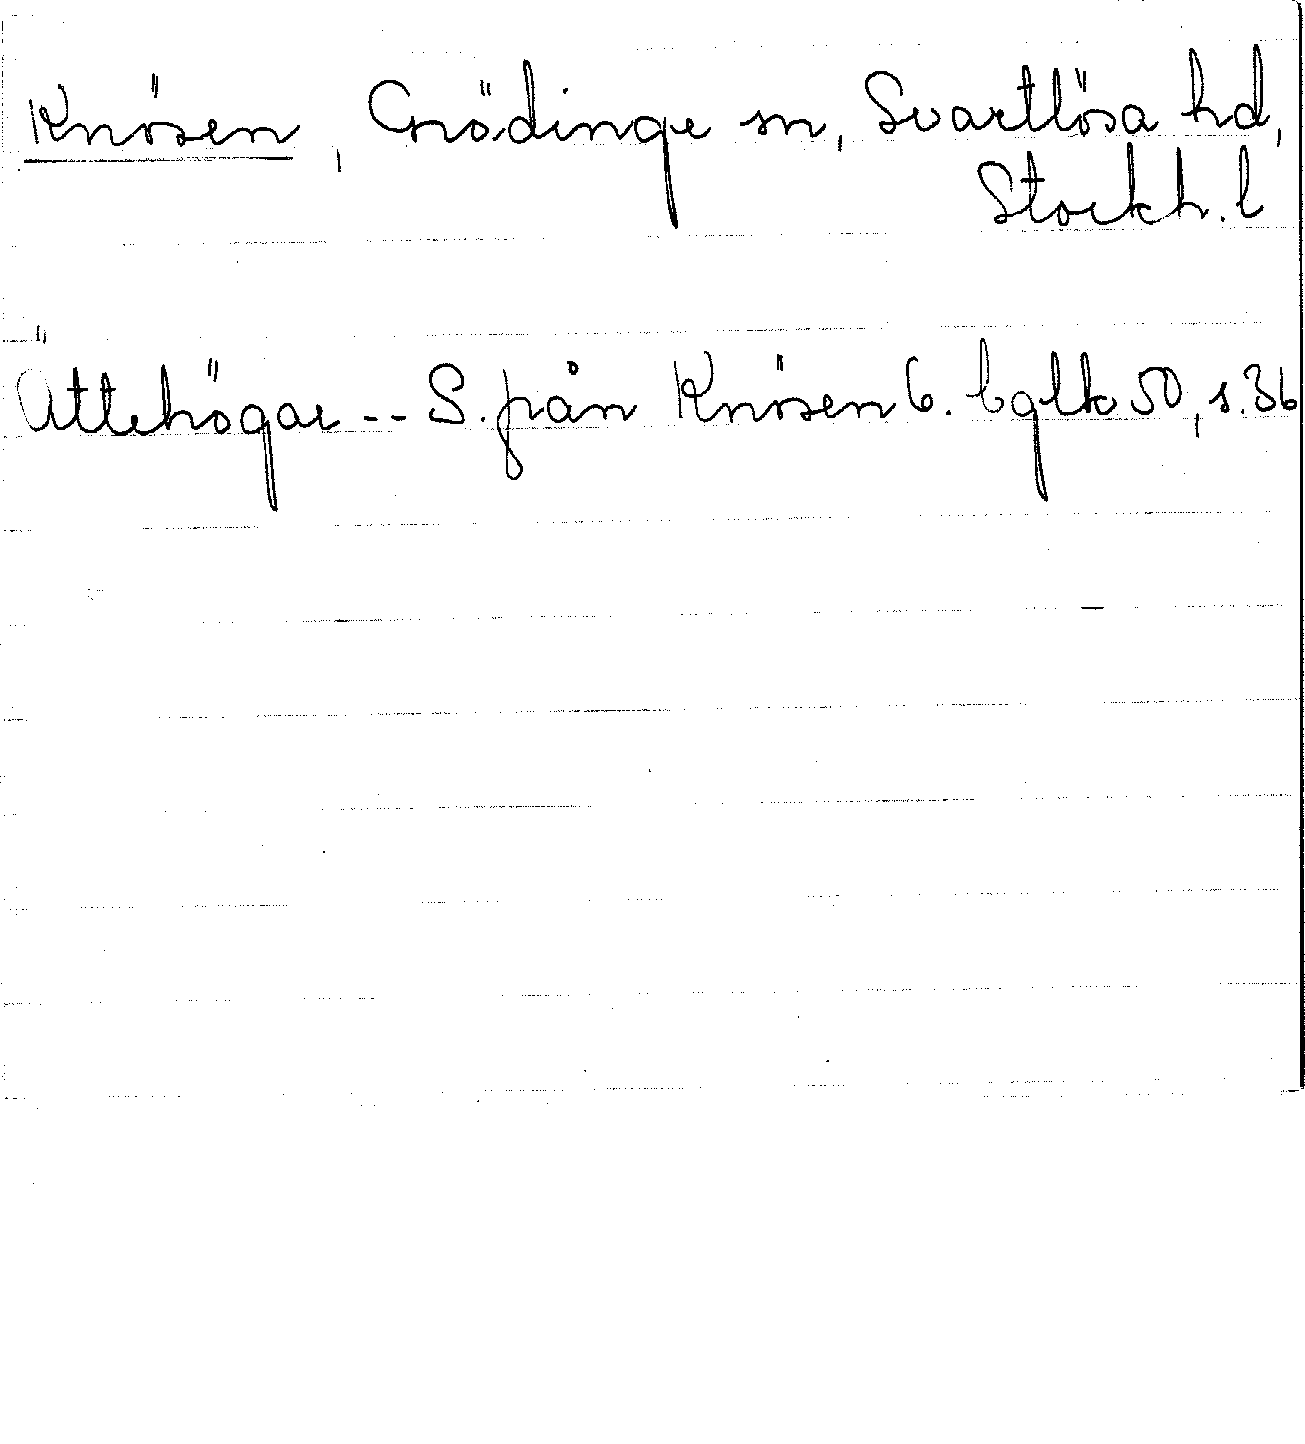 Knösen, Grödinge sn, Svartlösa hd,
Stockh. l
Ättehögar -- S. från Knösen 6. bglk 50, s. 36